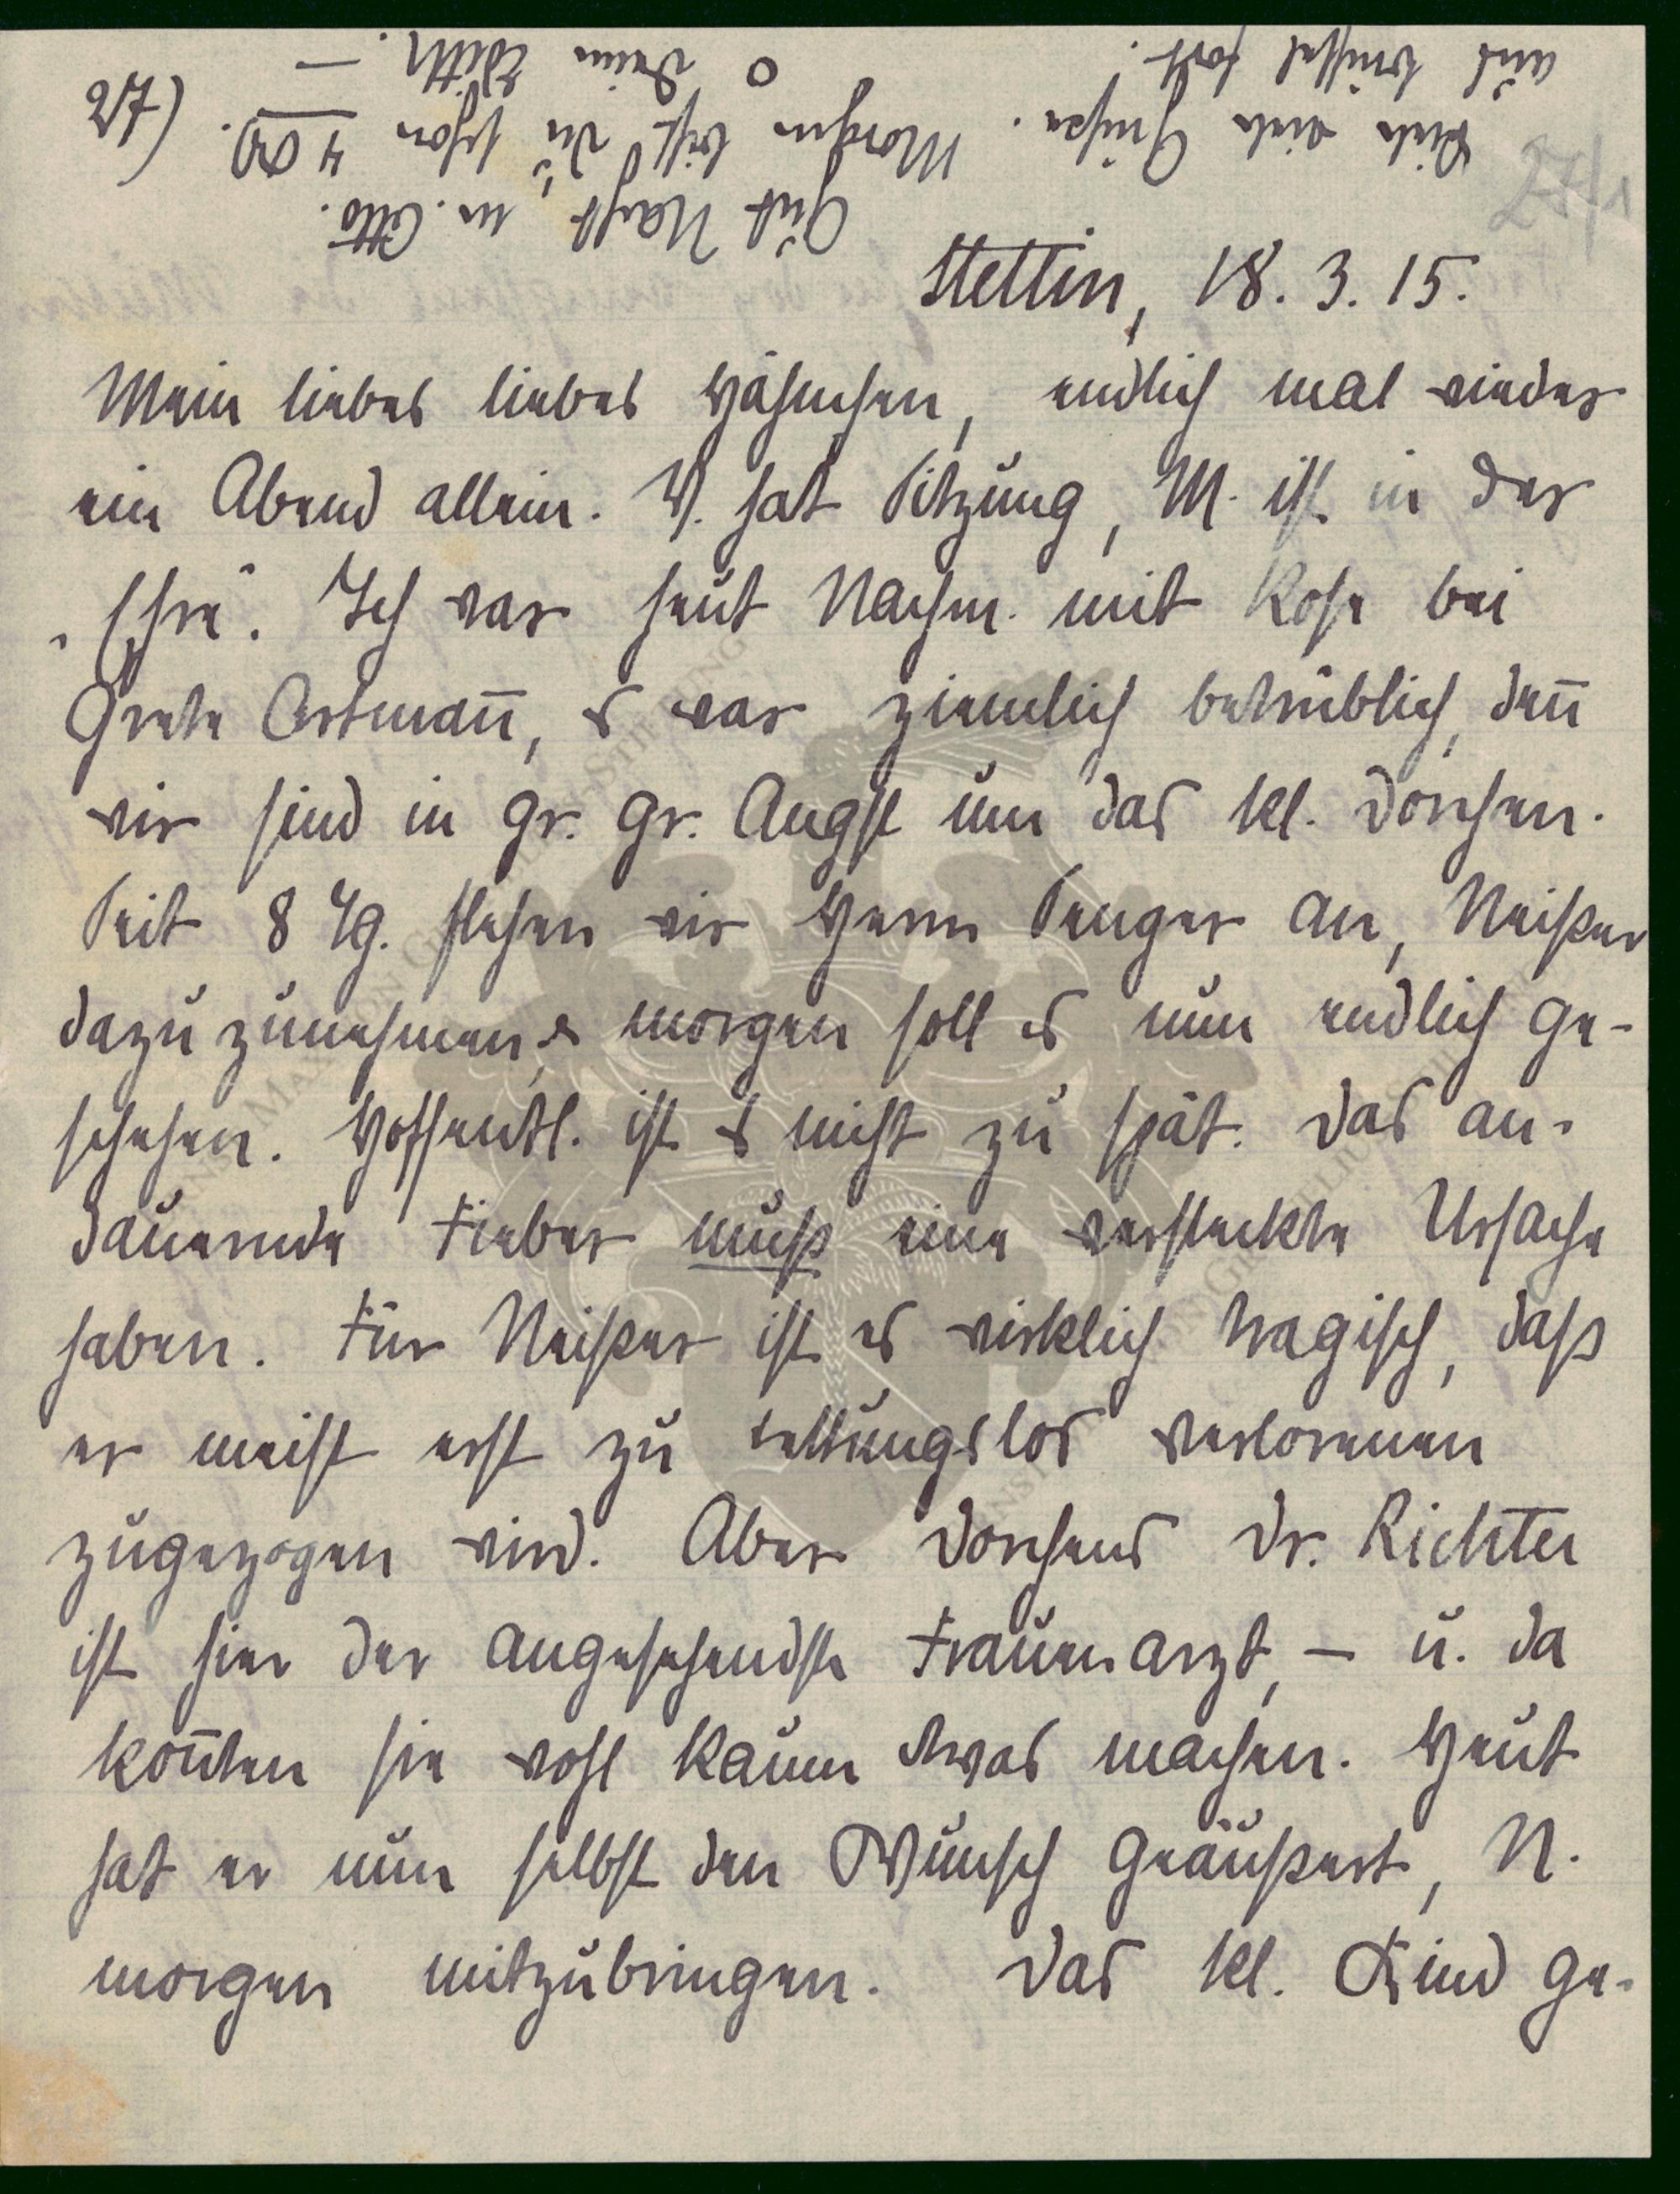 Gut Nacht, m. Otto.
viele viele Grüße. Morgen bist Du schon 4
und Brüssel fort. Deine Edith. —
27/1
Stettin, 18. 3. 15.
Mein liebes liebes Häschen, endlich mal wieder
ein Abend allein. V. hat Sitzung, M. ist in der
Ich war heut Nachm. mit Rose bei
Grete Ortmañ, es war ziemlich betrüblich, deñ
wir sind in gr. gr. Angst um das kl. Dorchen.
Seit 8 Tg. flehen wir Herrn Senger an, Neißer
dazuzunehmen, & morgen soll es nun endlich ge-
schehen. Hoffentl. ist es nicht zu spät. Das an-
dauernde Fieber muß eine versteckte Ursache
haben. Für Neißer ist es wirklich tragisch, daß
er meist erst zu rettungslos verlorenen
zugezogen wird. Aber Dorchens Dr. Richter
ist hier der angesehendste Frauenarzt, – u. da
koñten sie wohl kaum etwas machen. Heut
hat er nun selbst den Wunsch geäußert, N.
morgen mitzubringen. Das kl. Kind ge-